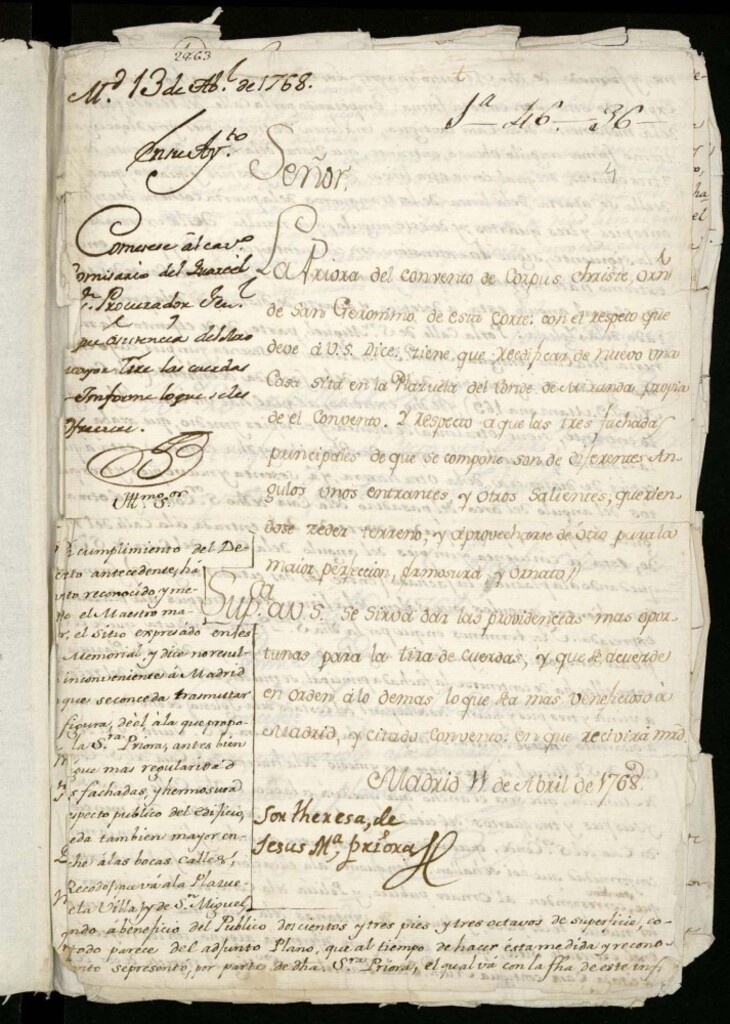 2463
M.d 13 de Ab.l de 1768.
1a - 46 - 36 -
En su Ay.to
4
Señor.
Cometese al cav.o
comisario del Quartel
Procurador Gen.l
asistencia del Mro
mayor Tire las cuerdas
Informe lo que se les
ofreciere.
Ill.mo S.or
La Priora del convento de Corpus christe, orn
de San Geronimo de esta Corte: con el respeto que
deve á V.S. Dice: tiene que Reedificar de nuevo una
Casa sita en la Plazuela del Conde de Miranda propia
de el Convento. Y respecto a que las tres fachadas
principales de que se compone son de diferentes An
gulos unos entrantes, y otros salientes, querien
dose zeder terreno, y aprovecharse de otro para la
maior perfeccion, ermosura y ornato
Sup.ca a V.S. se sirva dar las providencias mas opor
tunas para la tira de cuerdas, y que se acuerde
en orden á lo demas lo que sea mas veneficioso á
Madrid, y citado Convento: en que recivira mrd
Madrid 11 de Abril de 1768
Sor theresa, de
Jesus M.a priora
cumplimiento del De
antecedente, he
reconocido y me
el Maestro ma
r, el sitio expresado en es
Memorial, y dice no resul
inconveniente á Madrid
que se conceda trasmutar
figura, de el a la que propo
la S.ra Priora, antes bien
que mas regularidad
s fachadas, y hermosura
specto publico del edificio,
eda tambien mayor en
che á las bocas Calles,
Recodo que vá a la Plazue
ela Villa, y de S.n Miguel
ndo á beneficio del Publico doscientos y tres pies, y tres octavos de superficie, co
todo parece del adjunto Plano, que al tiempo de hacer esta medida y recono
nto se presentó, por parte de dha. S.ra Priora, el qual vá con la fha de este inf